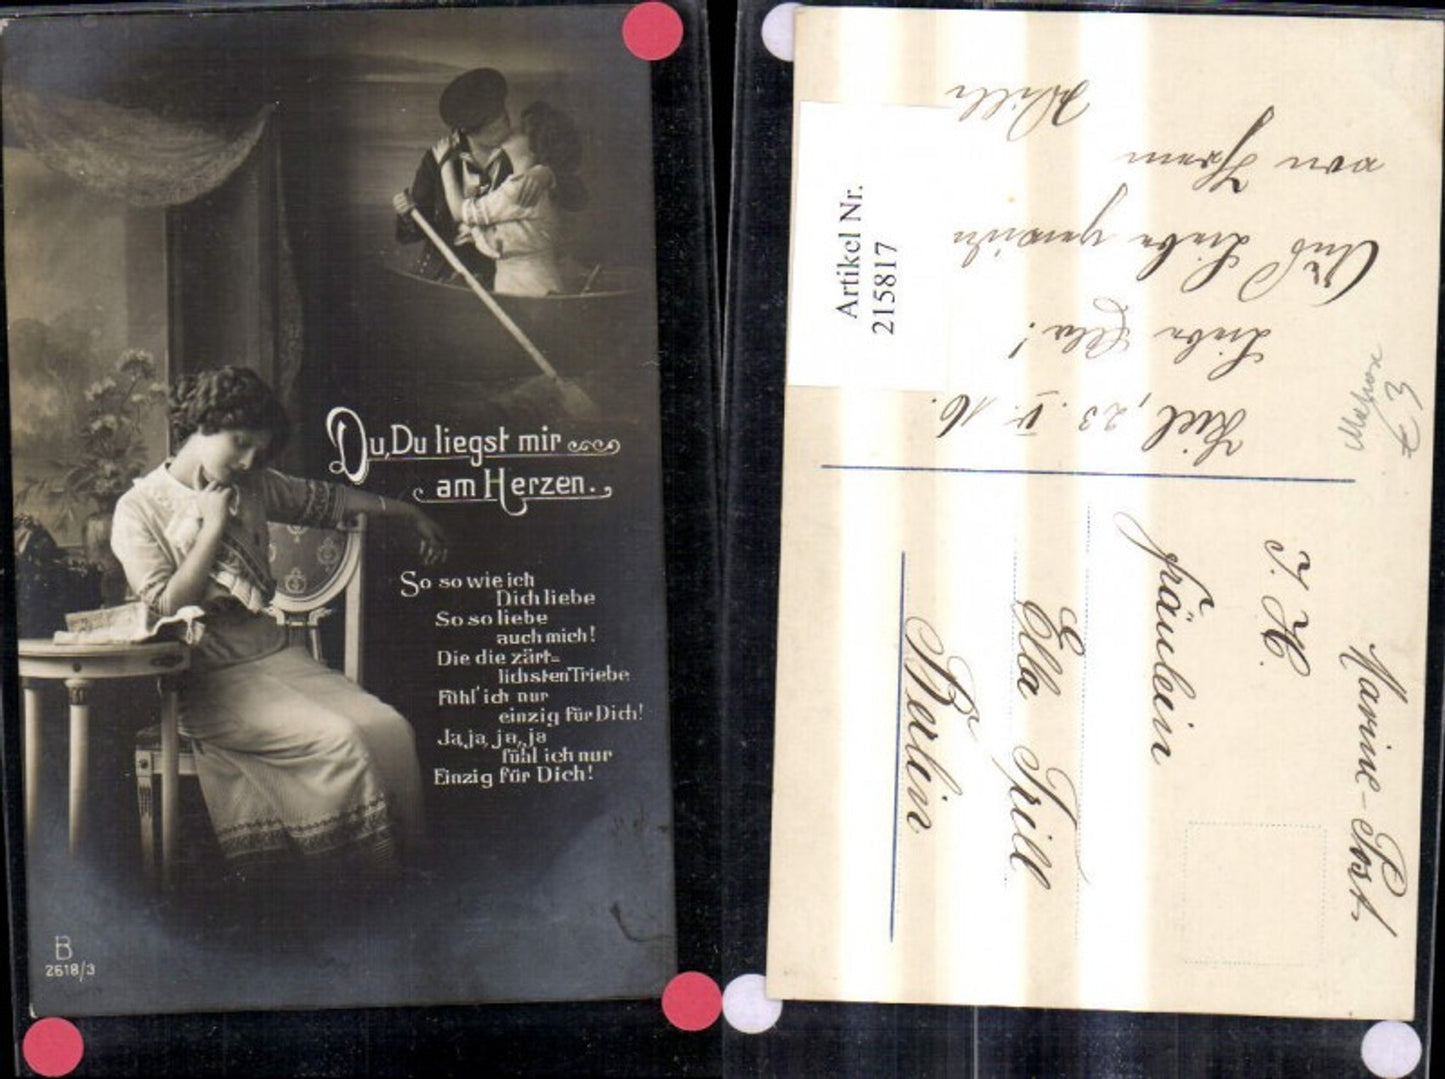 Du, Du liegst mir
am Herzen.
So so wie ich
Dich liebe
So so liebe
auch mich!
Die die zärt=
lichsten Triebe
Fühl' ich nur
einzig für Dich!
Ja, ja, ja, ja
fühl ich nur
Einzig für Dich!
B
2618/3
Artikel Nr.
215817
Kiel, 23. V. 16.
Liebe Ella!
Und Liebe
von Ihrem
Willi
Marine-Post.
F. H.
Fräulein
Ella Trill
Berlin
Matrose